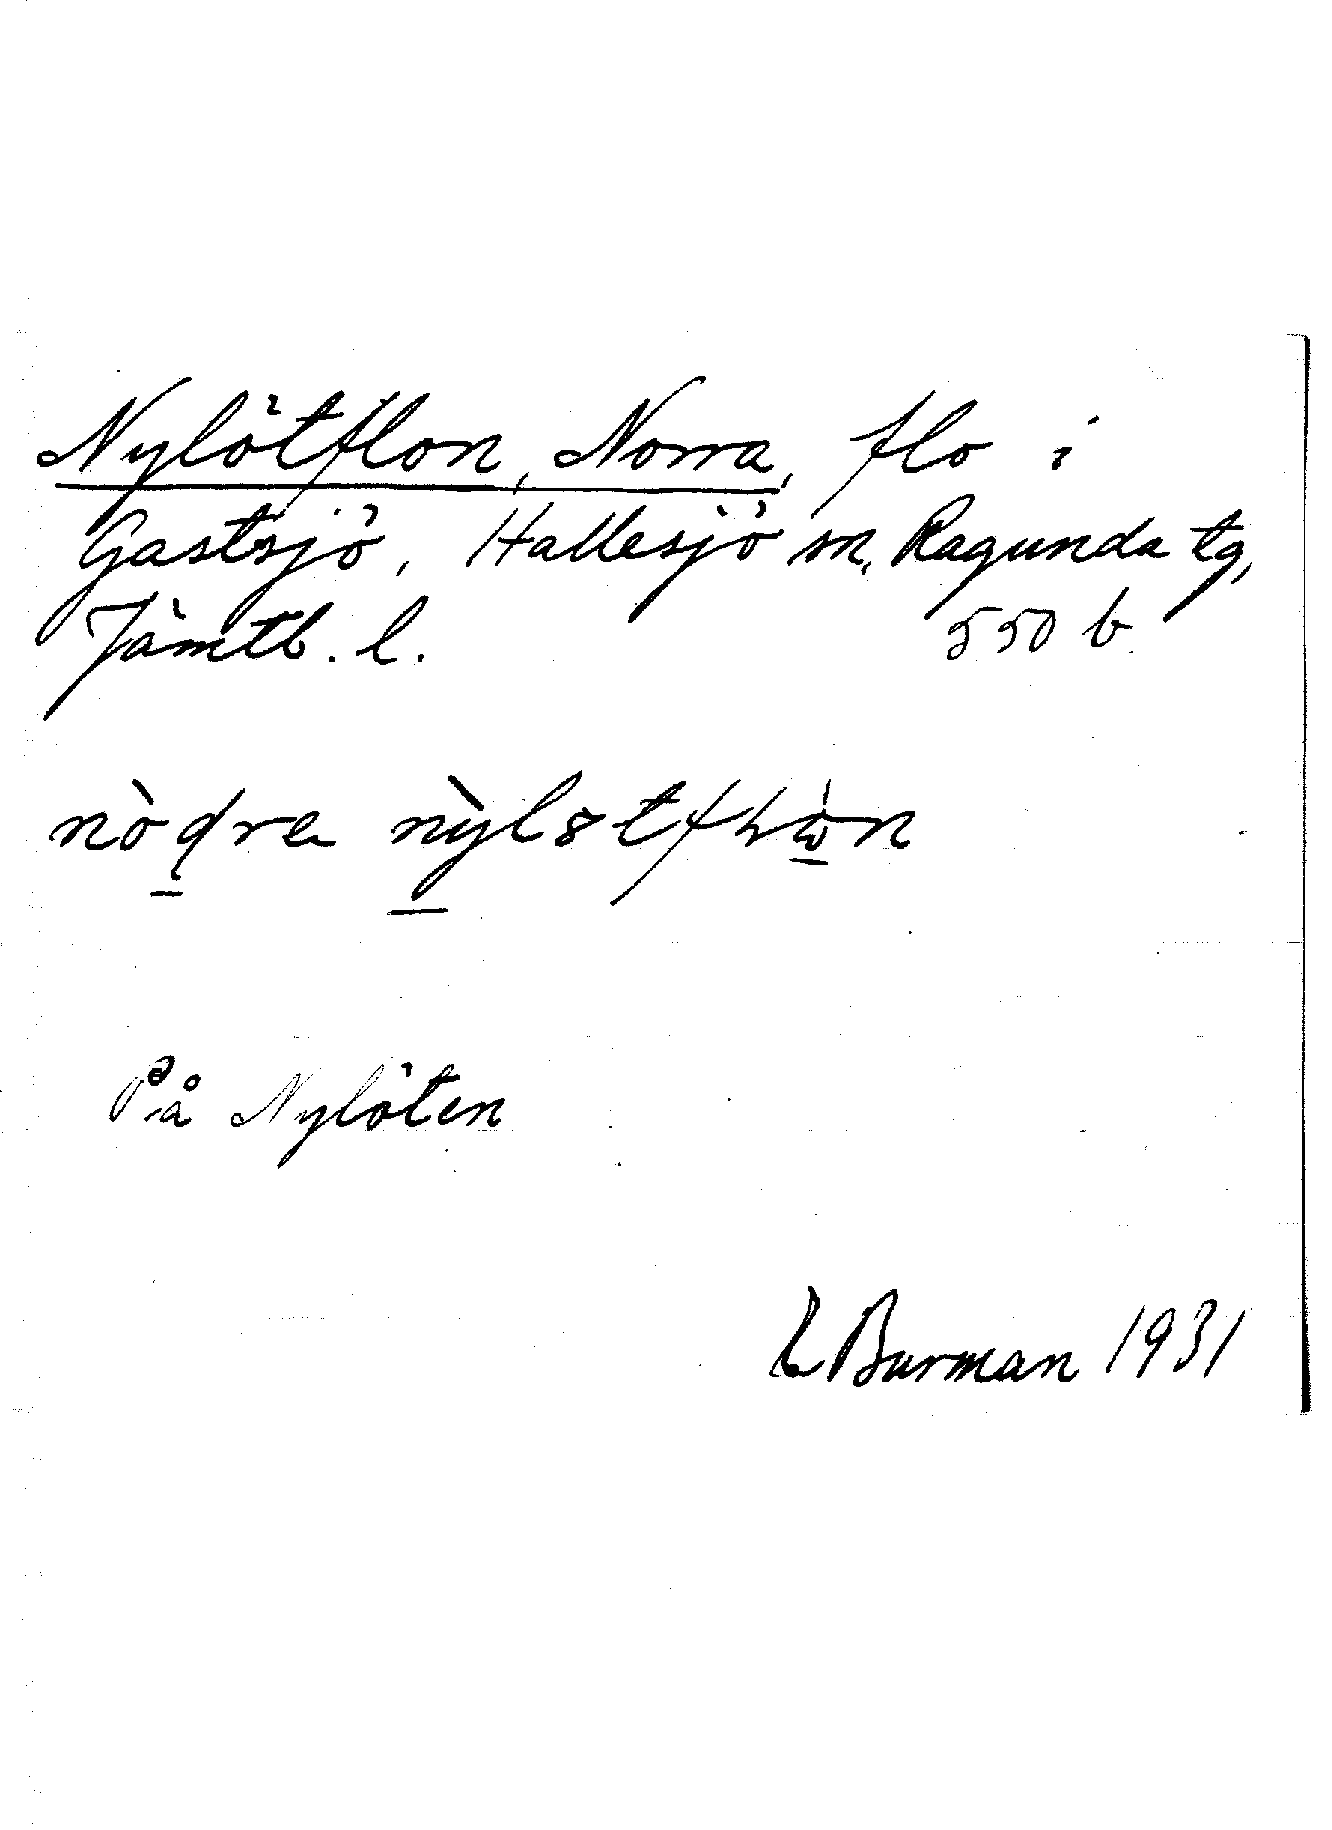 Nylötflon, Norra, flo i
Gastsjö, Hällesjö sn, Ragunda tg,
Jämtl. l. 550 b
På Nylöten
L Burman 1931